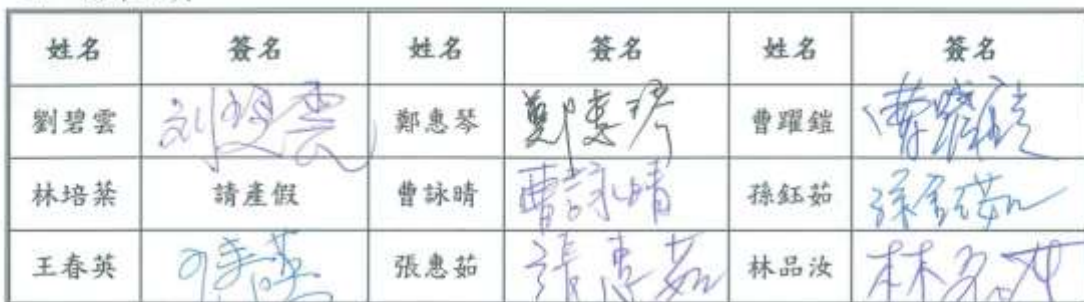 姓名 簽名 姓名 簽名 姓名 簽名
劉碧雲 劉碧雲 鄭惠琴 鄭惠琴 曹躍鎧 曹躍鎧
林培棻 請產假 曹詠晴 曹詠晴 孫鈺茹 孫鈺茹
王春英 王春英 張惠茹 張惠茹 林品汝 林品汝